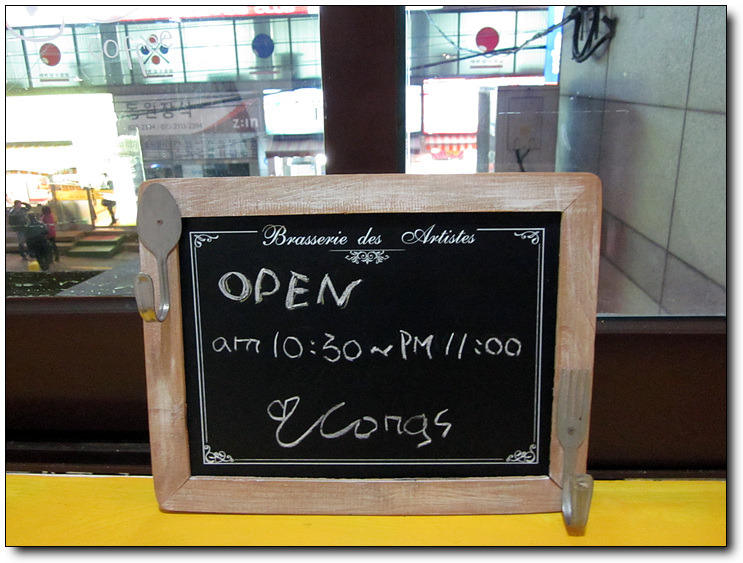 동원장식
z:in
Brasserie des Artistes
OPEN
am 10:30 ~ PM 11:00
Congs